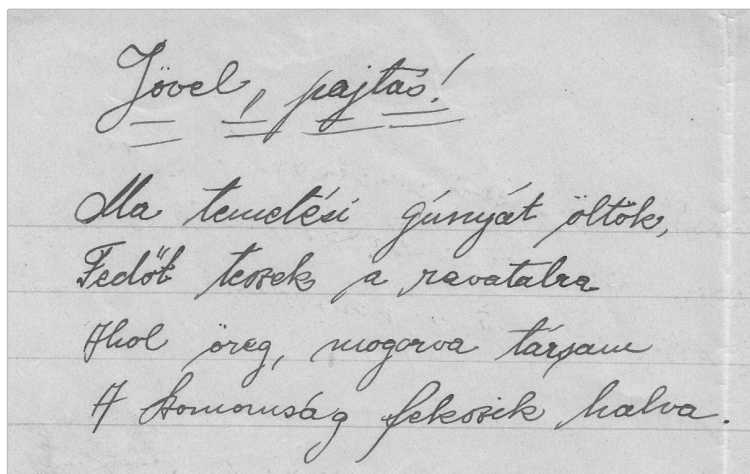 Jövel, pajtás!
Ma temetési gúnyát öltök,
Fedőt teszek a ravatalra
Ahol öreg, mogorva társam
A komorság fekszik halva.